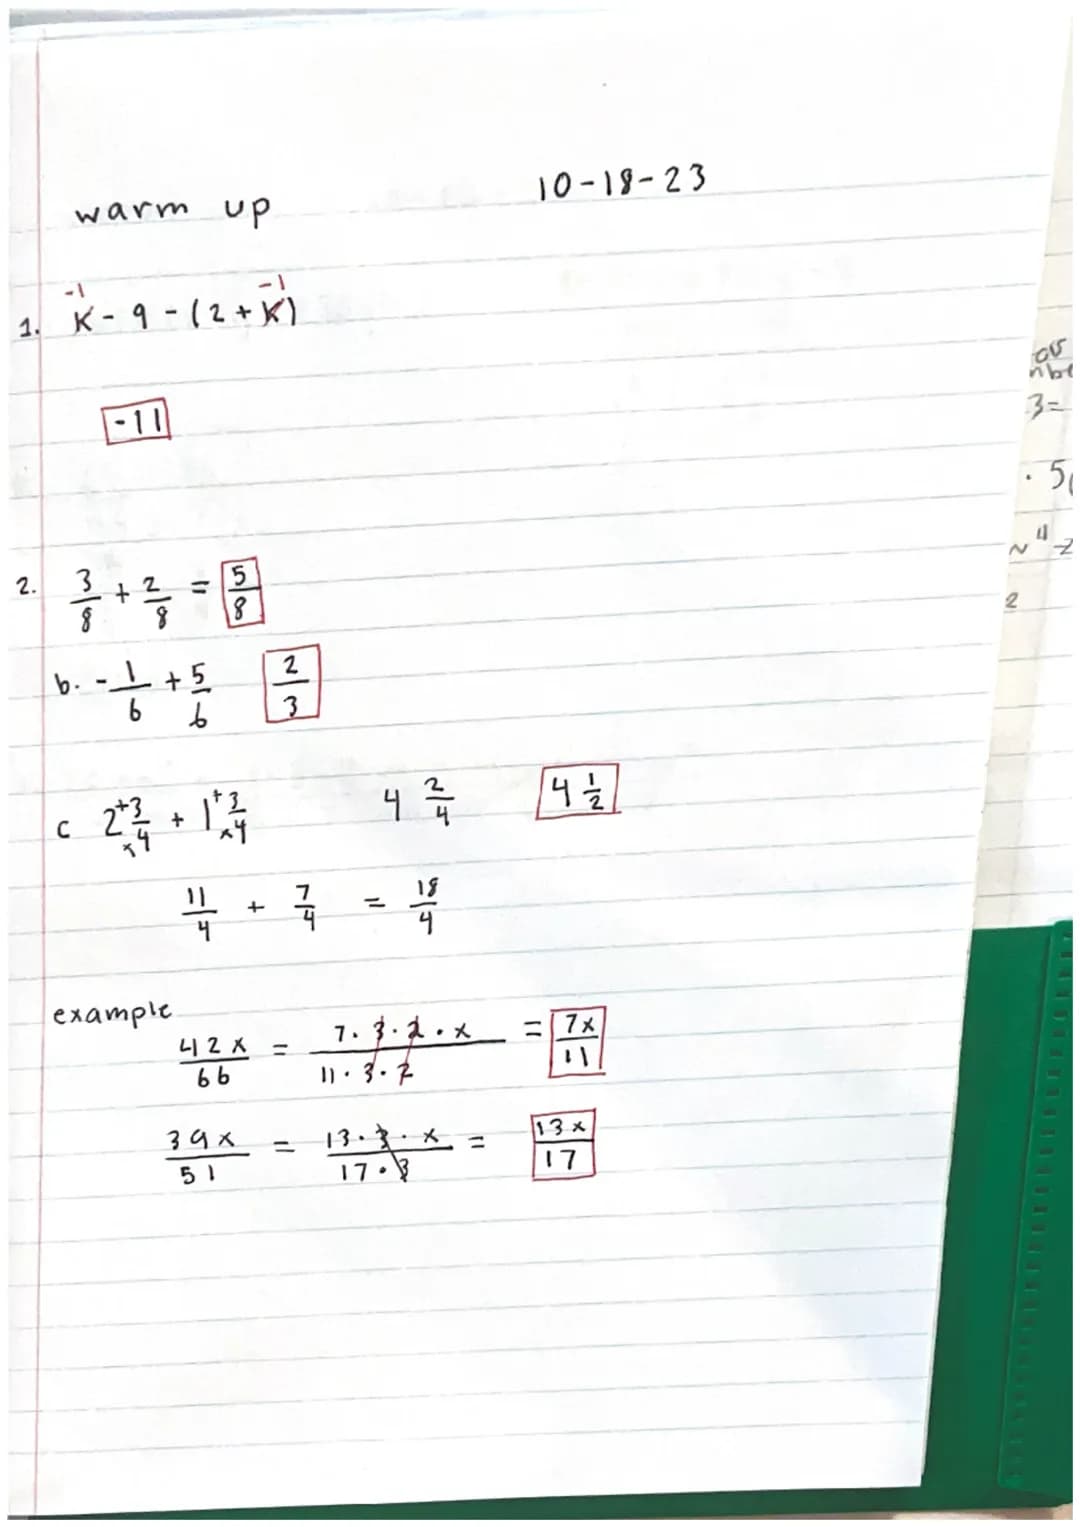 warm up 10-18-23
-1 -1
1. K - 9 - (2 + K)
-11
2. 3/8 + 2/8 = 5/8
b. - 1/6 + 5/6 2/3
c 2 + 3/x4 + 1 + 3/x4 4 2/4 4 1/2
11/4 + 7/4 = 18/4
example
42x/66 = 7·3·2·x/11·3·2 = 7x/11
39x/51 = 13·3·x/17·3 = 13x/17
3=
2